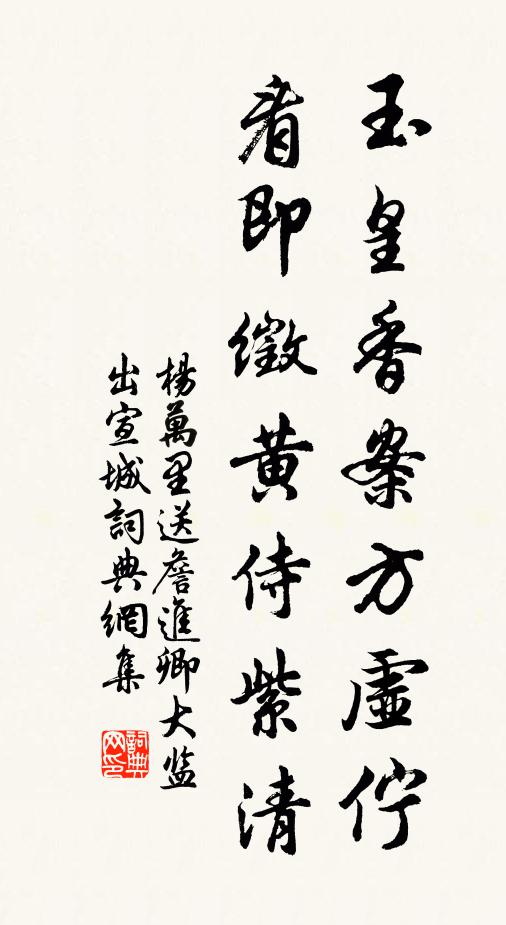 玉皇香案方虛佇
看即徵黃侍紫清
楊萬里送詹進卿大监
出宣城詞典網集
詞典网印